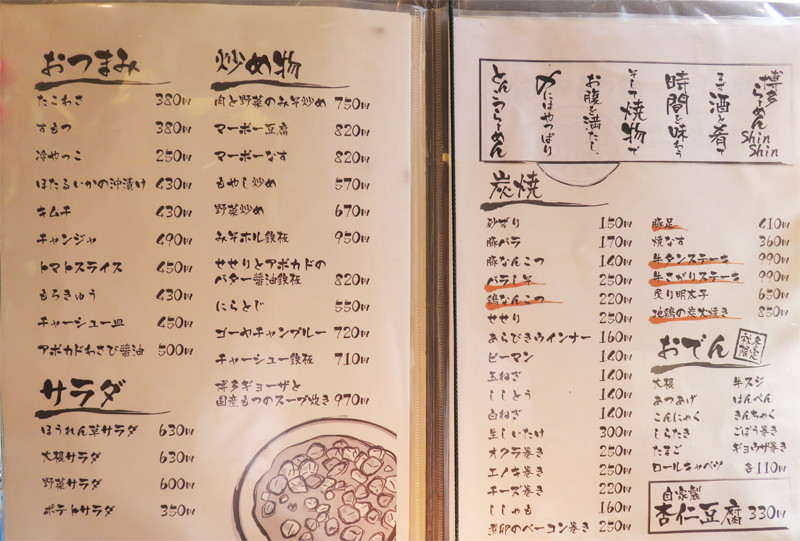 おつまみ
たこわさ 380円
すもつ 380円
冷やっこ 250円
ほたるいかの沖漬け 430円
キムチ 430円
チャンジャ 490円
トマトスライス 450円
もろきゅう 430円
チャーシュー皿 450円
アボカドわさび醤油 500円
サラダ
ほうれん草サラダ 630円
大根サラダ 630円
野菜サラダ 600円
ポテトサラダ 350円
炒め物
肉と野菜のみそ炒め 750円
マーボー豆腐 820円
マーボーなす 820円
もやし炒め 570円
野菜炒め 670円
みそホル鉄板 950円
せせりとアボカドの
バター醤油鉄板 820円
にらとじ 550円
ゴーヤチャンプルー 720円
チャーシュー鉄板 710円
博多ギョーザと
国産もつのスープ炊き 970円
博多らーめん ShinShin
まず酒と肴で
時間を味わう
そして焼物で
お腹を満たし、
〆にはやっぱり
とんこつらーめん
炭焼
砂ずり 150円
豚バラ 170円
豚なんこつ 160円
バラしそ 250円
鶏なんこつ 220円
せせり 250円
あらびきウインナー 160円
ピーマン 160円
玉ねぎ 160円
ししとう 160円
白ねぎ 160円
生しいたけ 300円
オクラ巻き 250円
エノキ巻き 250円
チーズ巻き 220円
ししゃも 160円
煮卵のベーコン巻き 250円
豚足 410円
焼なす 360円
牛タンステーキ 990円
牛さがりステーキ 990円
炙り明太子 650円
地鶏の炭火焼き 850円
おでん 秋冬限定
大根 牛スジ
あつあげ はんぺん
こんにゃく きんちゃく
しらたき ごぼう巻き
たまご ギョウザ巻き
ロールキャベツ 各110円
自家製
杏仁豆腐 330円